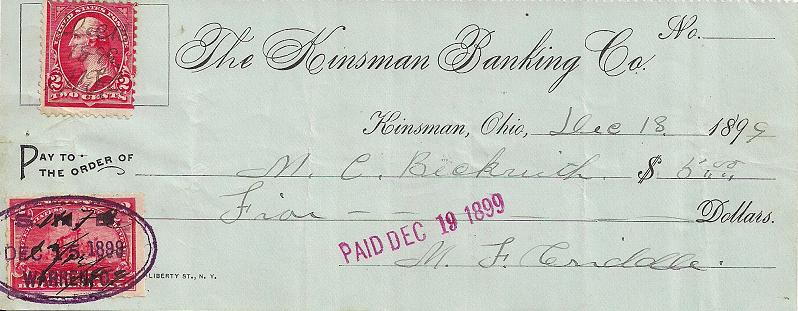 No.
The Kinsman Banking Co.
UNITED STATES POSTAGE
2 2
TWO CENTS
Kinsman, Ohio, Dec 18 1899
PAY TO THE ORDER OF M. C. Beckwith $ 5.00
Five Dollars.
PAID DEC 19 1899
M. F. Criddle.
DEC 1899
LIBERTY ST., N. Y.